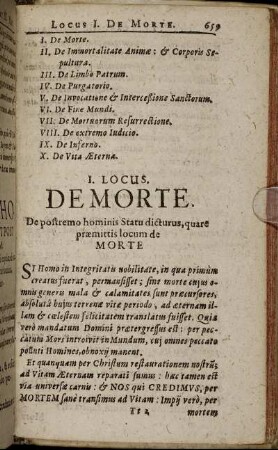 LOCUS I. DE MORTE. 659
I. De Morte.
II. De Immortalitate Animæ: & Corporis Se-
pultura.
III. De Limbo Patrum.
IV. De Purgatorio.
V. De Invocatione & Intercessione Sanctorum.
VI. De Fine Mundi.
VII. De Mortuorum Resurrectione.
VIII. De extremo Iudicio.
IX. De Inferno.
X. De Vita Æternæ.
I. LOCUS.
DE MORTE.
De postremo hominis Statu dicturus, quare
præmittis locum de
MORTE
SI Homo in Integritatis nobilitate, in qua primùm
creatus fuerat, permansisset; sine morte cujus om-
nis generis mala & calamitates sunt præcursores,
Absolutâ hujus terrenæ vitæ periodo, ad æternam il-
lam & cœlestem felicitatem translatus fuisset. Quia
verò mandatum Domini prætergressus est: per pec-
catum Mors introivit in Mundum, cui omnes peccato
polluti Homines, obnoxij manent.
Et quanquam per Christum restaurationem nostrum
ad Vitam Æternam reparati sumus: huc tamen est
via universæ carnis: & NOS qui CREDIMUS, per
MORTEM sanè transimus ad Vitam: Impij verò, per
Tt 2 mortem